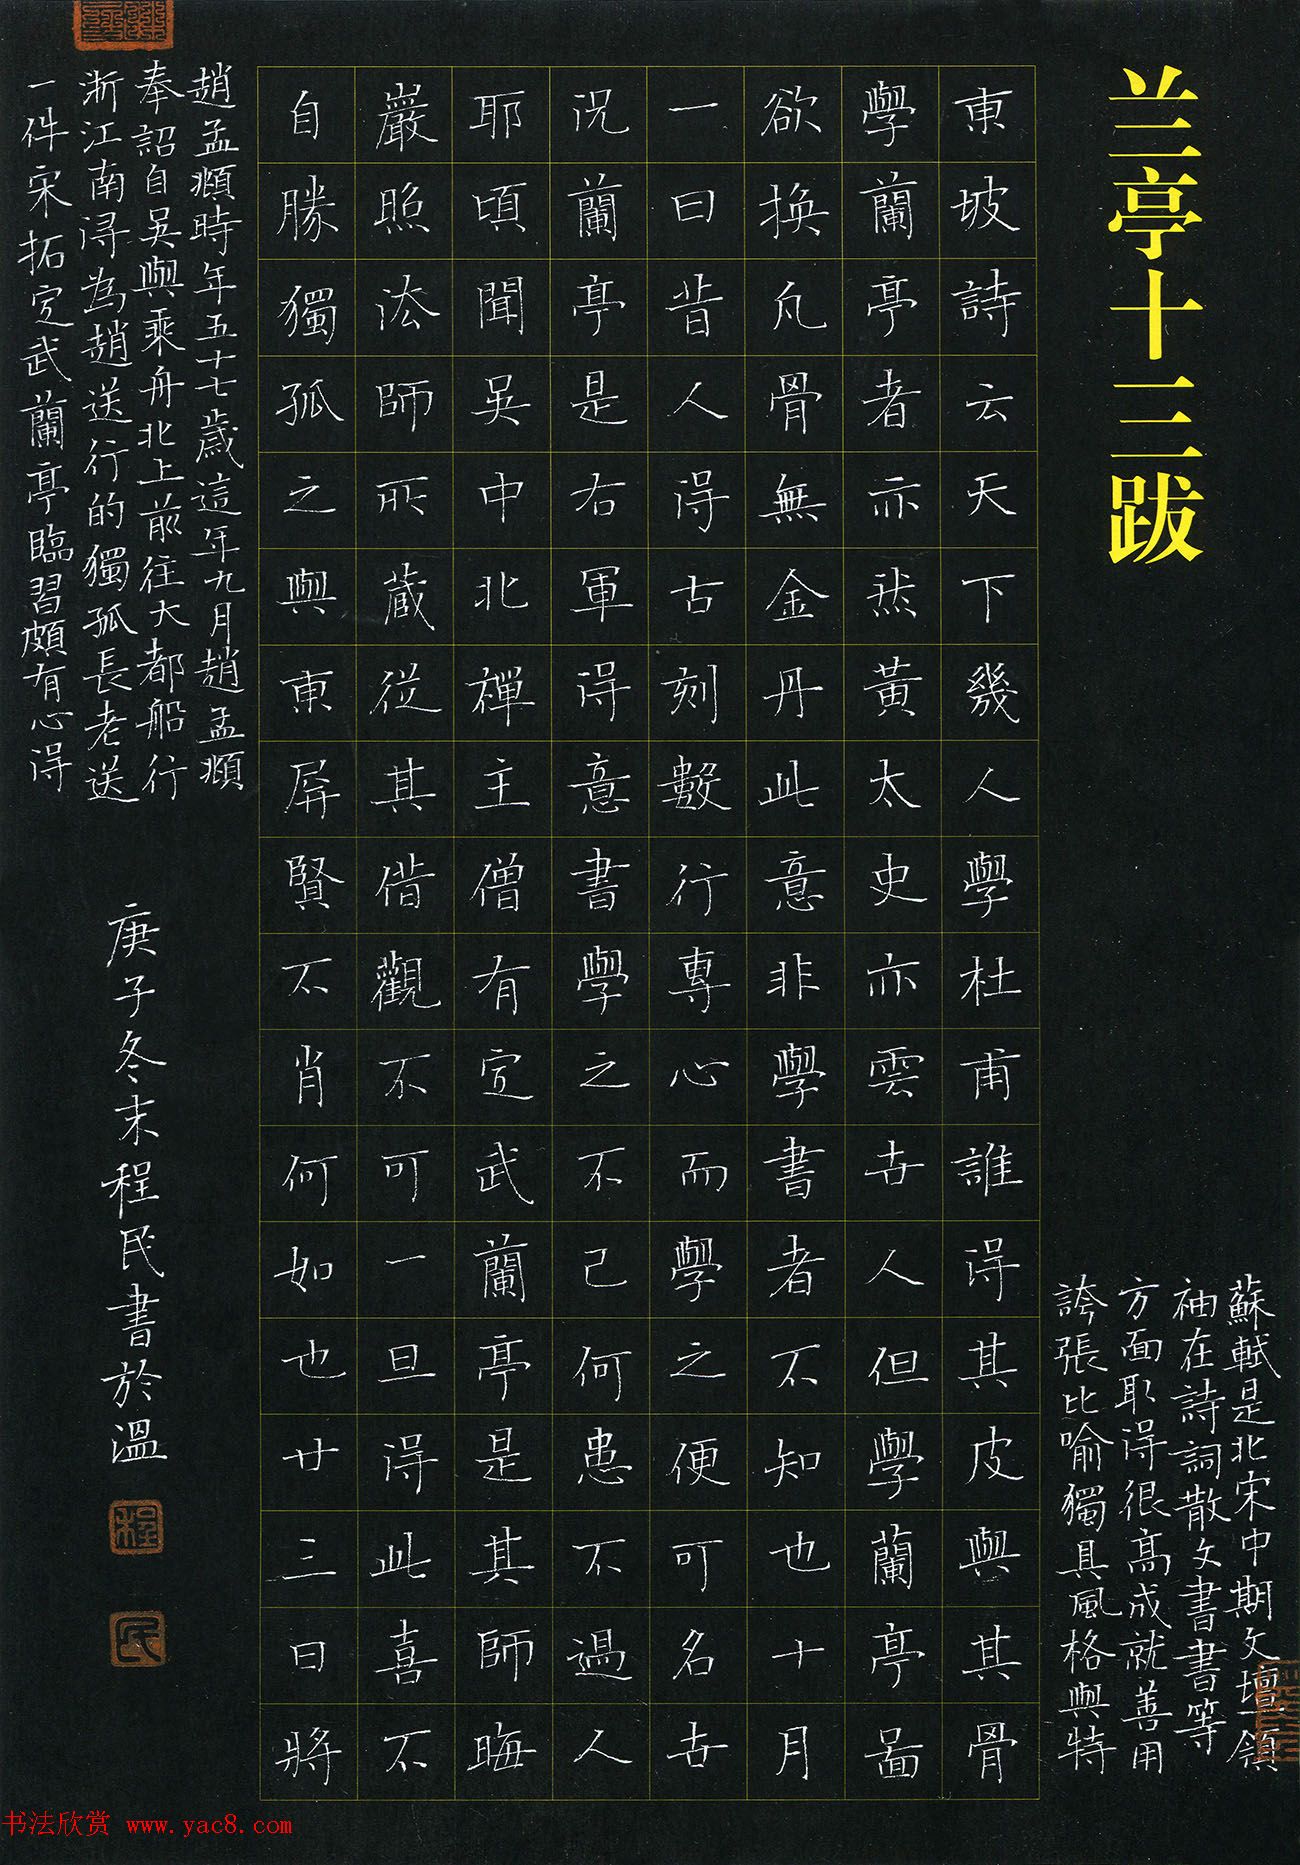 兰亭十三跋
蘇軾是北宋中期文壇領
袖在詩詞散文書書等
方面取得很高成就善用
誇張比喻獨具風格與特
東坡詩云天下幾人學杜甫誰得其皮與其骨
學蘭亭者亦然黃太史亦雲世人但學蘭亭面
欲換凡骨無金丹此意非學書者不知也十月
一日昔人得古刻數行專心而學之便可名世
況蘭亭是右軍得意書學之不已何患不過人
耶頃聞吳中北禪主僧有定武蘭亭是其師晦
巖照法師所藏從其借觀不可一旦得此喜不
自勝獨孤之與東屏賢不肖何如也廿三日將
趙孟頫時年五十七歲這年九月趙孟頫
奉詔自吳興乘舟北上前往大都船行
浙江南潯為趙送行的獨孤長老送
一件宋拓定武蘭亭臨習頗有心得
庚子冬末程民書於溫
程
民
书法欣赏 www.yac8.com